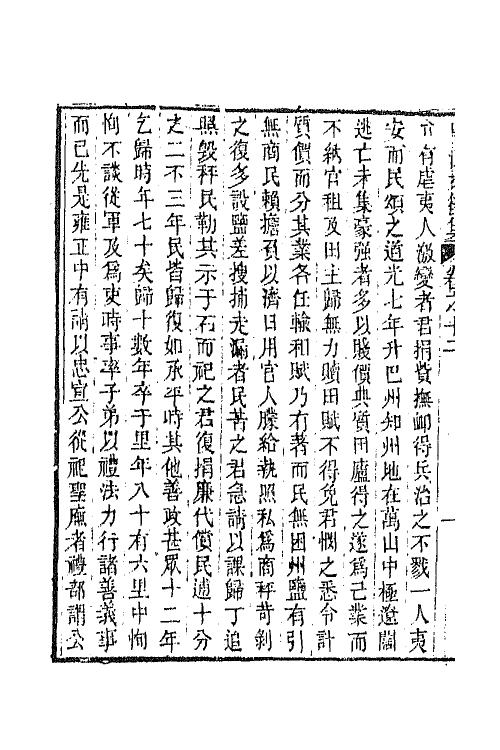 有虐夷人激變者君捐貲撫卹得兵治之不戮一人夷
安而民頌之道光七年升巴州知州地在萬山中極遼闊
逃亡未集豪強者多以賤價典質田廬得之遂爲己業而
不納官租及田主歸無力贖田賦不得免君憫之悉令計
質價而分其業各任輸和賦乃有著而民無困州鹽有引
無商民賴擔負以濟日用官人牒給執照私爲商秤苛剝
之復多設鹽差搜捕走漏者民苦之君急請以課歸丁追
照毀秤民勒其示于石而祀之君復捐廉代償民逋十分
之二不三年民皆歸復如承平時其他善政甚眾十二年
乞歸時年七十矣歸十數年卒于里年八十有六里中恂
恂不談從軍及爲吏時事率子弟以禮法力行諸善義事
而已先是雍正中有請以忠宣公從祀聖廡者禮部謂公